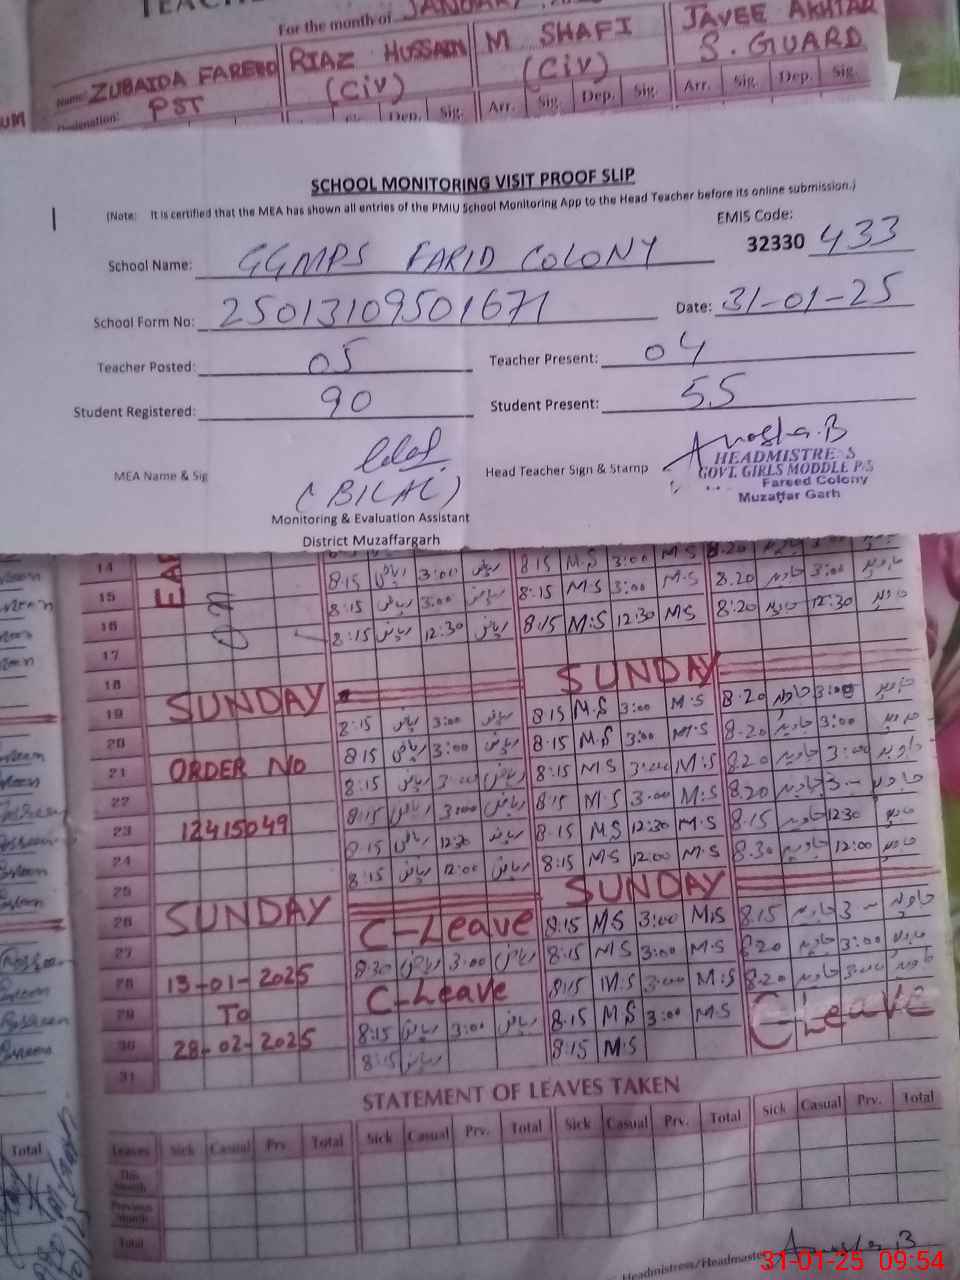 For the month of JANUARY
Name: ZUBAIDA FAREED RIAZ HUSSAIN M SHAFI JAVEE AKHTAR
Designation: PST (Civ) (Civ) S. GUARD
Dep. Sig. Arr. Sig. Dep. Sig. Arr. Sig. Dep. Sig.
SCHOOL MONITORING VISIT PROOF SLIP
(Note: It is certified that the MEA has shown all entries of the PMIU School Monitoring App to the Head Teacher before its online submission.)
EMIS Code:
School Name: GGMPS FARID COLONY 32330 433
School Form No: 25013109501671 Date: 31-01-25
Teacher Posted: 05 Teacher Present: 04
Student Registered: 90 Student Present: 55
MEA Name & Sig (BILAL) Head Teacher Sign & Stamp
HEADMISTRESS
GOVT. GIRLS MODDLE P/S
Fareed Colony
Muzaffar Garh
Monitoring & Evaluation Assistant
District Muzaffargarh
14 8:15 ریاض 3:00 ریاض 8:15 M.S 3:00 M.S 8.20
15 8:15 ریاض 3:00 ریاض 8:15 M.S 3:00 M.S 8.20 جاوید 3:00 جاوید
16 8:15 ریاض 12:30 ریاض 8:15 M.S 12:30 MS 8:20 جاوید 12:30 جاوید
17
18 SUNDAY SUNDAY
19 8:15 ریاض 3:00 ریاض 8:15 M.S 3:00 M.S 8.20 جاوید 3:00 جاوید
20 8:15 ریاض 3:00 ریاض 8:15 M.S 3:00 M.S 8.20 جاوید 3:00 جاوید
21 ORDER NO 8:15 ریاض 3:00 ریاض 8:15 M S 3:00 M:S 8.20 جاوید 3:00 جاوید
22 8:15 ریاض 3:00 ریاض 8:15 M.S 3:00 M:S 8.20 جاوید 3- جاوید
23 12415049 8:15 ریاض 12:30 ریاض 8:15 M.S 12:30 M.S 8.15 جاوید 12:30 جاوید
24 8:15 ریاض 12:00 ریاض 8:15 M.S 12:00 M.S 8.30 جاوید 12:00 جاوید
25 SUNDAY SUNDAY
26 C-Leave 8:15 M.S 3:00 M.S 8.15 جاوید 3- جاوید
27 8:30 ریاض 3:00 ریاض 8:15 M S 3:00 M.S 8.20 جاوید 3:00 جاوید
28 13-01-2025 C-Leave 8:15 M.S 3:00 M:S 8.20 جاوید 3:00 جاوید
29 To 8:15 ریاض 3:00 ریاض 8:15 M.S 3:00 M.S C-Leave
30 28-02-2025 8:15 ریاض 8:15 M.S
31
STATEMENT OF LEAVES TAKEN
Leaves Sick Casual Prv. Total Sick Casual Prv. Total Sick Casual Prv. Total Sick Casual Prv. Total
This Month
Previous Month
Total
Total
Headmistress/Headmaster
31-01-25 09:54